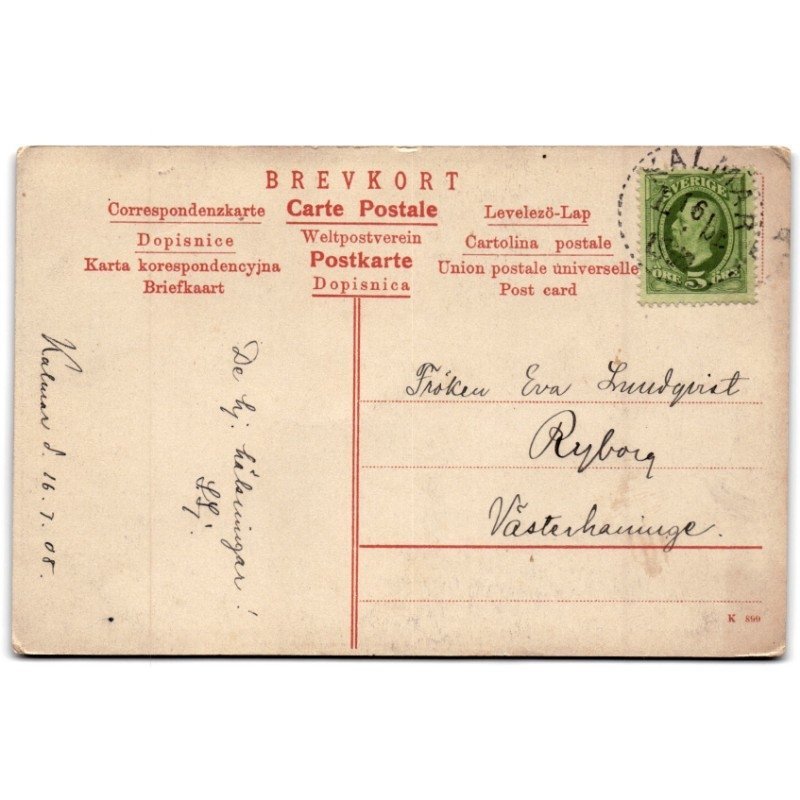 BREVKORT
Correspondenzkarte Carte Postale Levelező-Lap
Dopisnice Weltpostverein Cartolina postale
Karta korespondencyjna Postkarte Union postale universelle
Briefkaart Dopisnica Post card
KALMAR
SVERIGE
ÖRE 5
Kalmar d. 16.7.08.
De hj. hälsningar!
Fröken Eva Lundqvist
Ryborg
Västerhaninge.
K 899